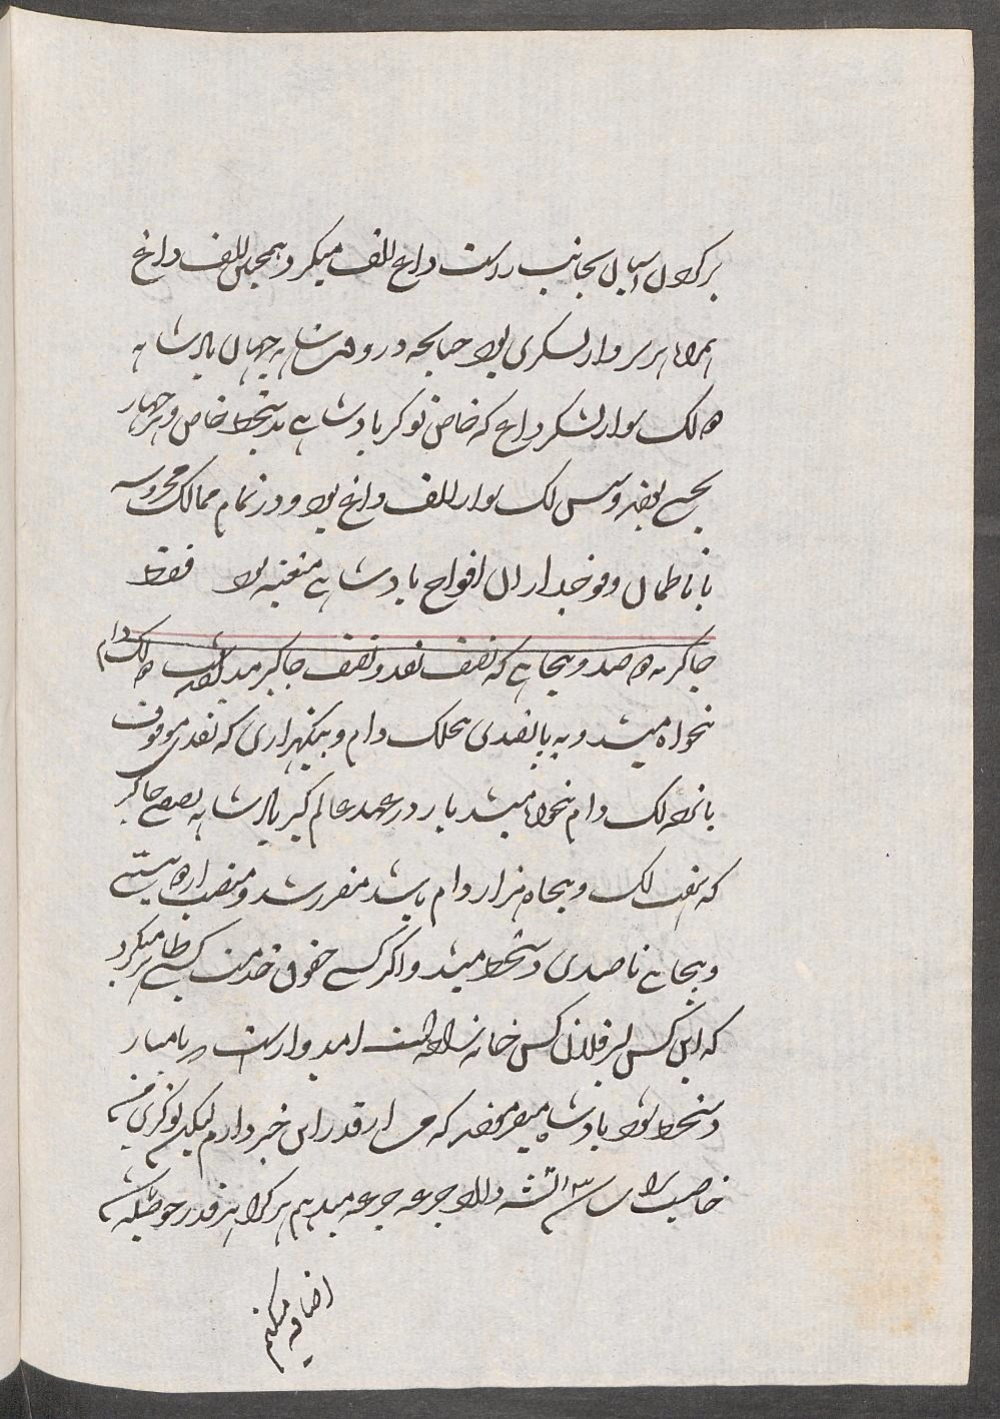 بر کلاں اسپاں بجانب راست داغ الف میکرد همچنین الف داغ
همراه هر سوار لشکری بود چنانچه در وقت شاه جهان بادشاه
ه لک سوار لشکر داغ که خاص نوکر بادشاهے بدستخط خاص و چهار
بودند و لک سوار الف داغ بود و در تمام ممالک محروسه
با ناظمان و فوجداران افواج بادشاهے متعینه بود فقط
جاگیر ه صد و پنجاهے که نصف نقد و نصف جاگیر میداشت ه لک دام
تنخواه میشد و به پانصدی لک دام و یکهزاری که نقدی موقوف
لک دام تنخواه میشد بار در عهد عالم گیر بادشاه جاگیر
که هفت لک و پنجاه هزار دام باشد مقرر شد و منصب از ه بیستے
و پنجاهے تا صدی دستخط میشد و اگر کسے حقوق خدمت کسے ظاهر میکرد
که این کس پسر فلان کس خانه زاد است امیدوار است
دستخط شود بادشاه میفرمودند که من از قدر این خبر دارم لیکن نوکری من
خاصیت تشنه دارد جرعه جرعه میدهم هر کرا هر قدر حوصله
اضافه میکنم